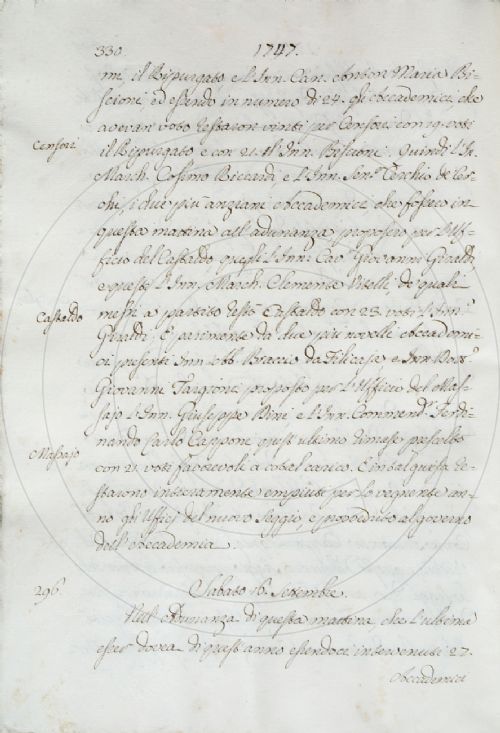 330. 1747.
mi, il Ripurgato e l'Inn. Can. Anton Maria Bi-
scioni, ed essendo in numero di 24. gli Accademici che
avevan voto restaron vinti per Censori con 19. voti
Censori
il Ripurgato e con 21. l'Inn. Biscioni. Quindi l'In.
March. Cosimo Riccardi, e l'Inn. Sen.e Cerchio de' Cer-
chi, i due più anziani Accademici che fossero in
questa mattina all'adunanza proposero per l'Uf-
ficio del Castaldo quegli l'Inn. Cav. Giovanni Giraldi,
e questi l'Inn. March. Clemente Vitelli, de' quali
messi a partito restò Castaldo con 23. voti l'Inn.
Castaldo
Giraldi. E parimente da due più novelli Accademi-
ci presenti Inn. Abb. Braccio da Filicaja e Inn. Dott.
Giovanni Targioni proposto per l'Ufficio del Mas-
sajo l'Inn. Giuseppe Bini e l'Inn. Commend. Ferdi-
nando Carlo Capponi quest'ultimo rimase prescelto
Massajo
con 21. voti favorevoli a cotal carico. E in tal guisa re-
starono interamente empiuti per lo vegnente an-
no gli Uffici del nuovo Seggio, e provveduto al governo
dell'Accademia.
296. Sabato 16. Settembre.
Nell'Adunanza di questa mattina che l'ultima
esser dovea di quest'anno essendoci intervenuti 27.
Accademici